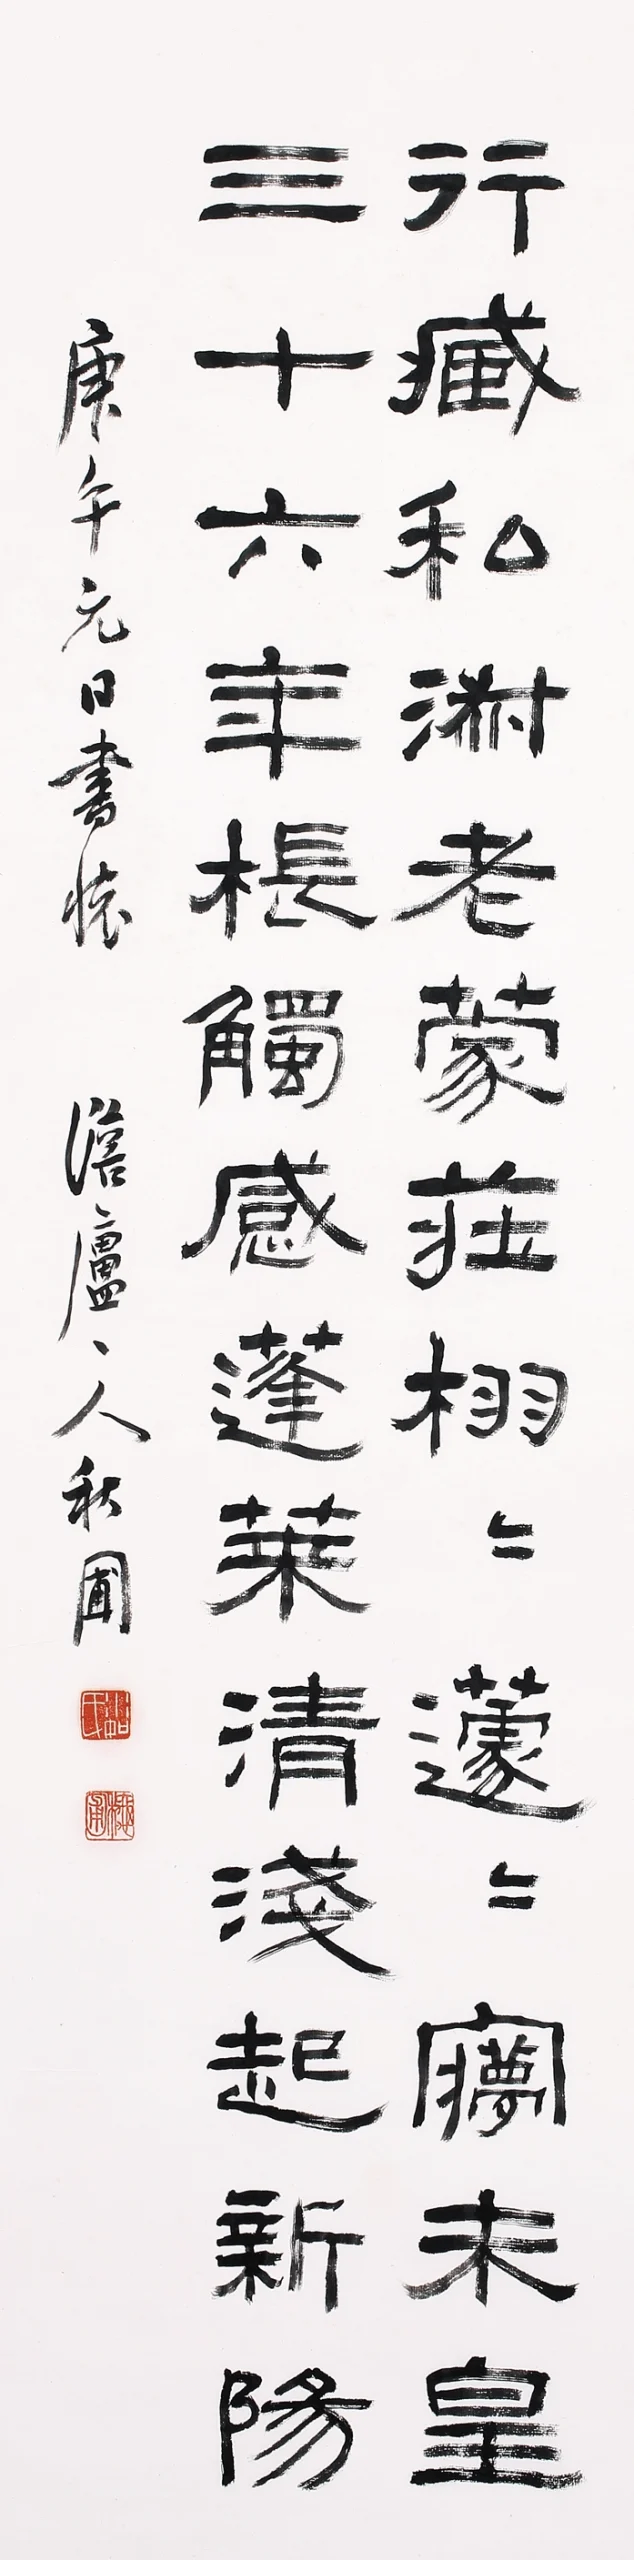 行藏私淑老蒙莊栩〻蘧〻㝱未皇
三十六年棖觸感蓬萊清淺起新陽
庚午元日書懷 澹廬丶人秋圃
秋圃